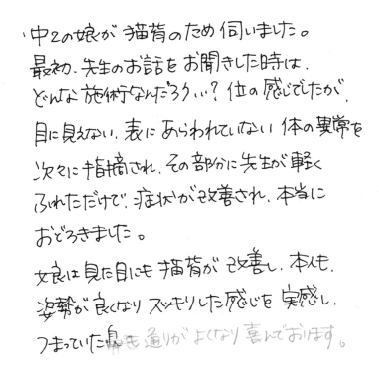 中2の娘が猫背のため伺いました。
最初、先生のお話をお聞きした時は、
どんな施術なんだろう…?位の感じでしたが、
目に見えない、表にあらわれていない体の異常を
次々に指摘され、その部分に先生が軽く
ふれただけで、症状が改善され、本当に
おどろきました。
娘は見た目にも猫背が改善し、本人も、
姿勢が良くなりスッキリした感じを実感し、
つまっていた鼻も通りがよくなり喜んでおります。